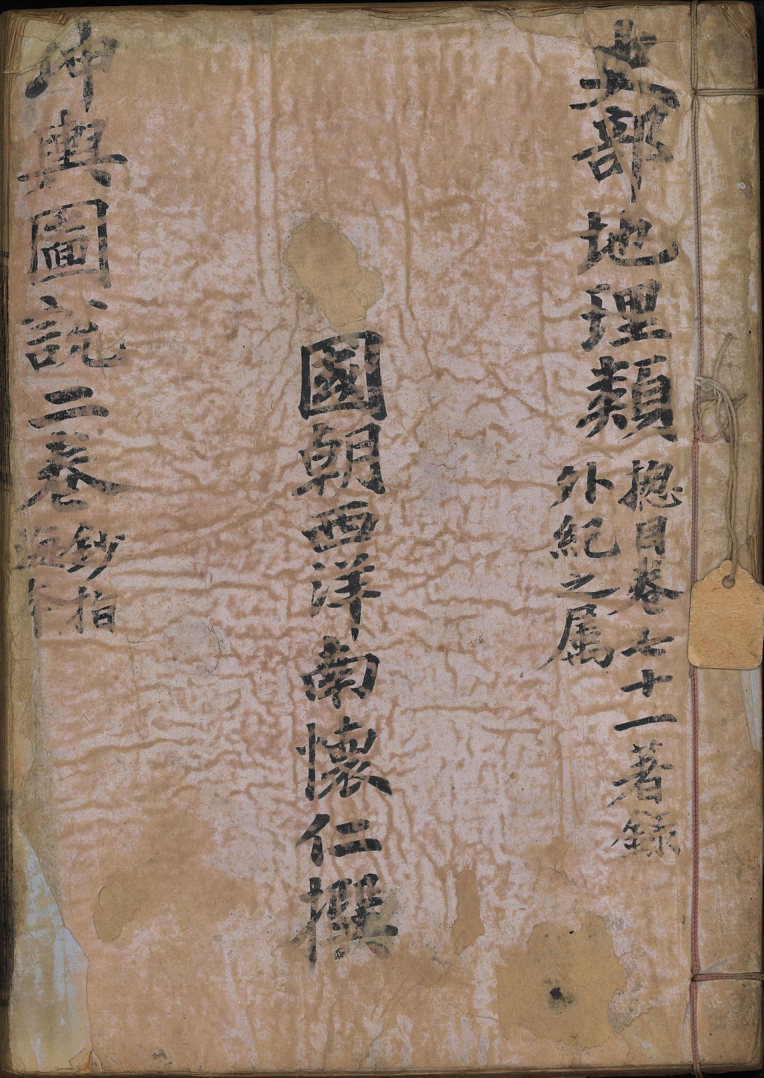 史部地理類
揔目卷七十一著錄
外紀之属
國朝西洋南懷仁撰
坤輿圖說二卷
鈔指
海本